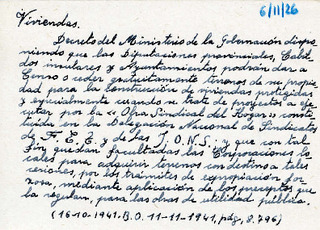 6/11/26
Viviendas.
Decreto del Ministerio de la Gobernación dispo-
niendo que las Diputaciones provinciales, Cabil-
dos insulares y Ayuntamientos podrán dar a
Censo o ceder gratuitamente terrenos de su propie-
dad para la construcción de viviendas protegidas
y especialmente cuando se trate de proyectos a eje-
cutar por la "Obra Sindical del Hogar" consti-
tuida en la Delegación Nacional de Sindicatos
de F. E. T. y de las J. O. N. S., y que con tal
fin, quedan facultadas las Corporaciones lo-
cales para adquirir terrenos con destino a tales
cesiones, por los trámites de expropiación for-
zosa, mediante aplicación de los preceptos que
la regulan, para las obras de utilidad pública.
(16-10-1941. B.O. 11-11-1941, pág. 8.796)